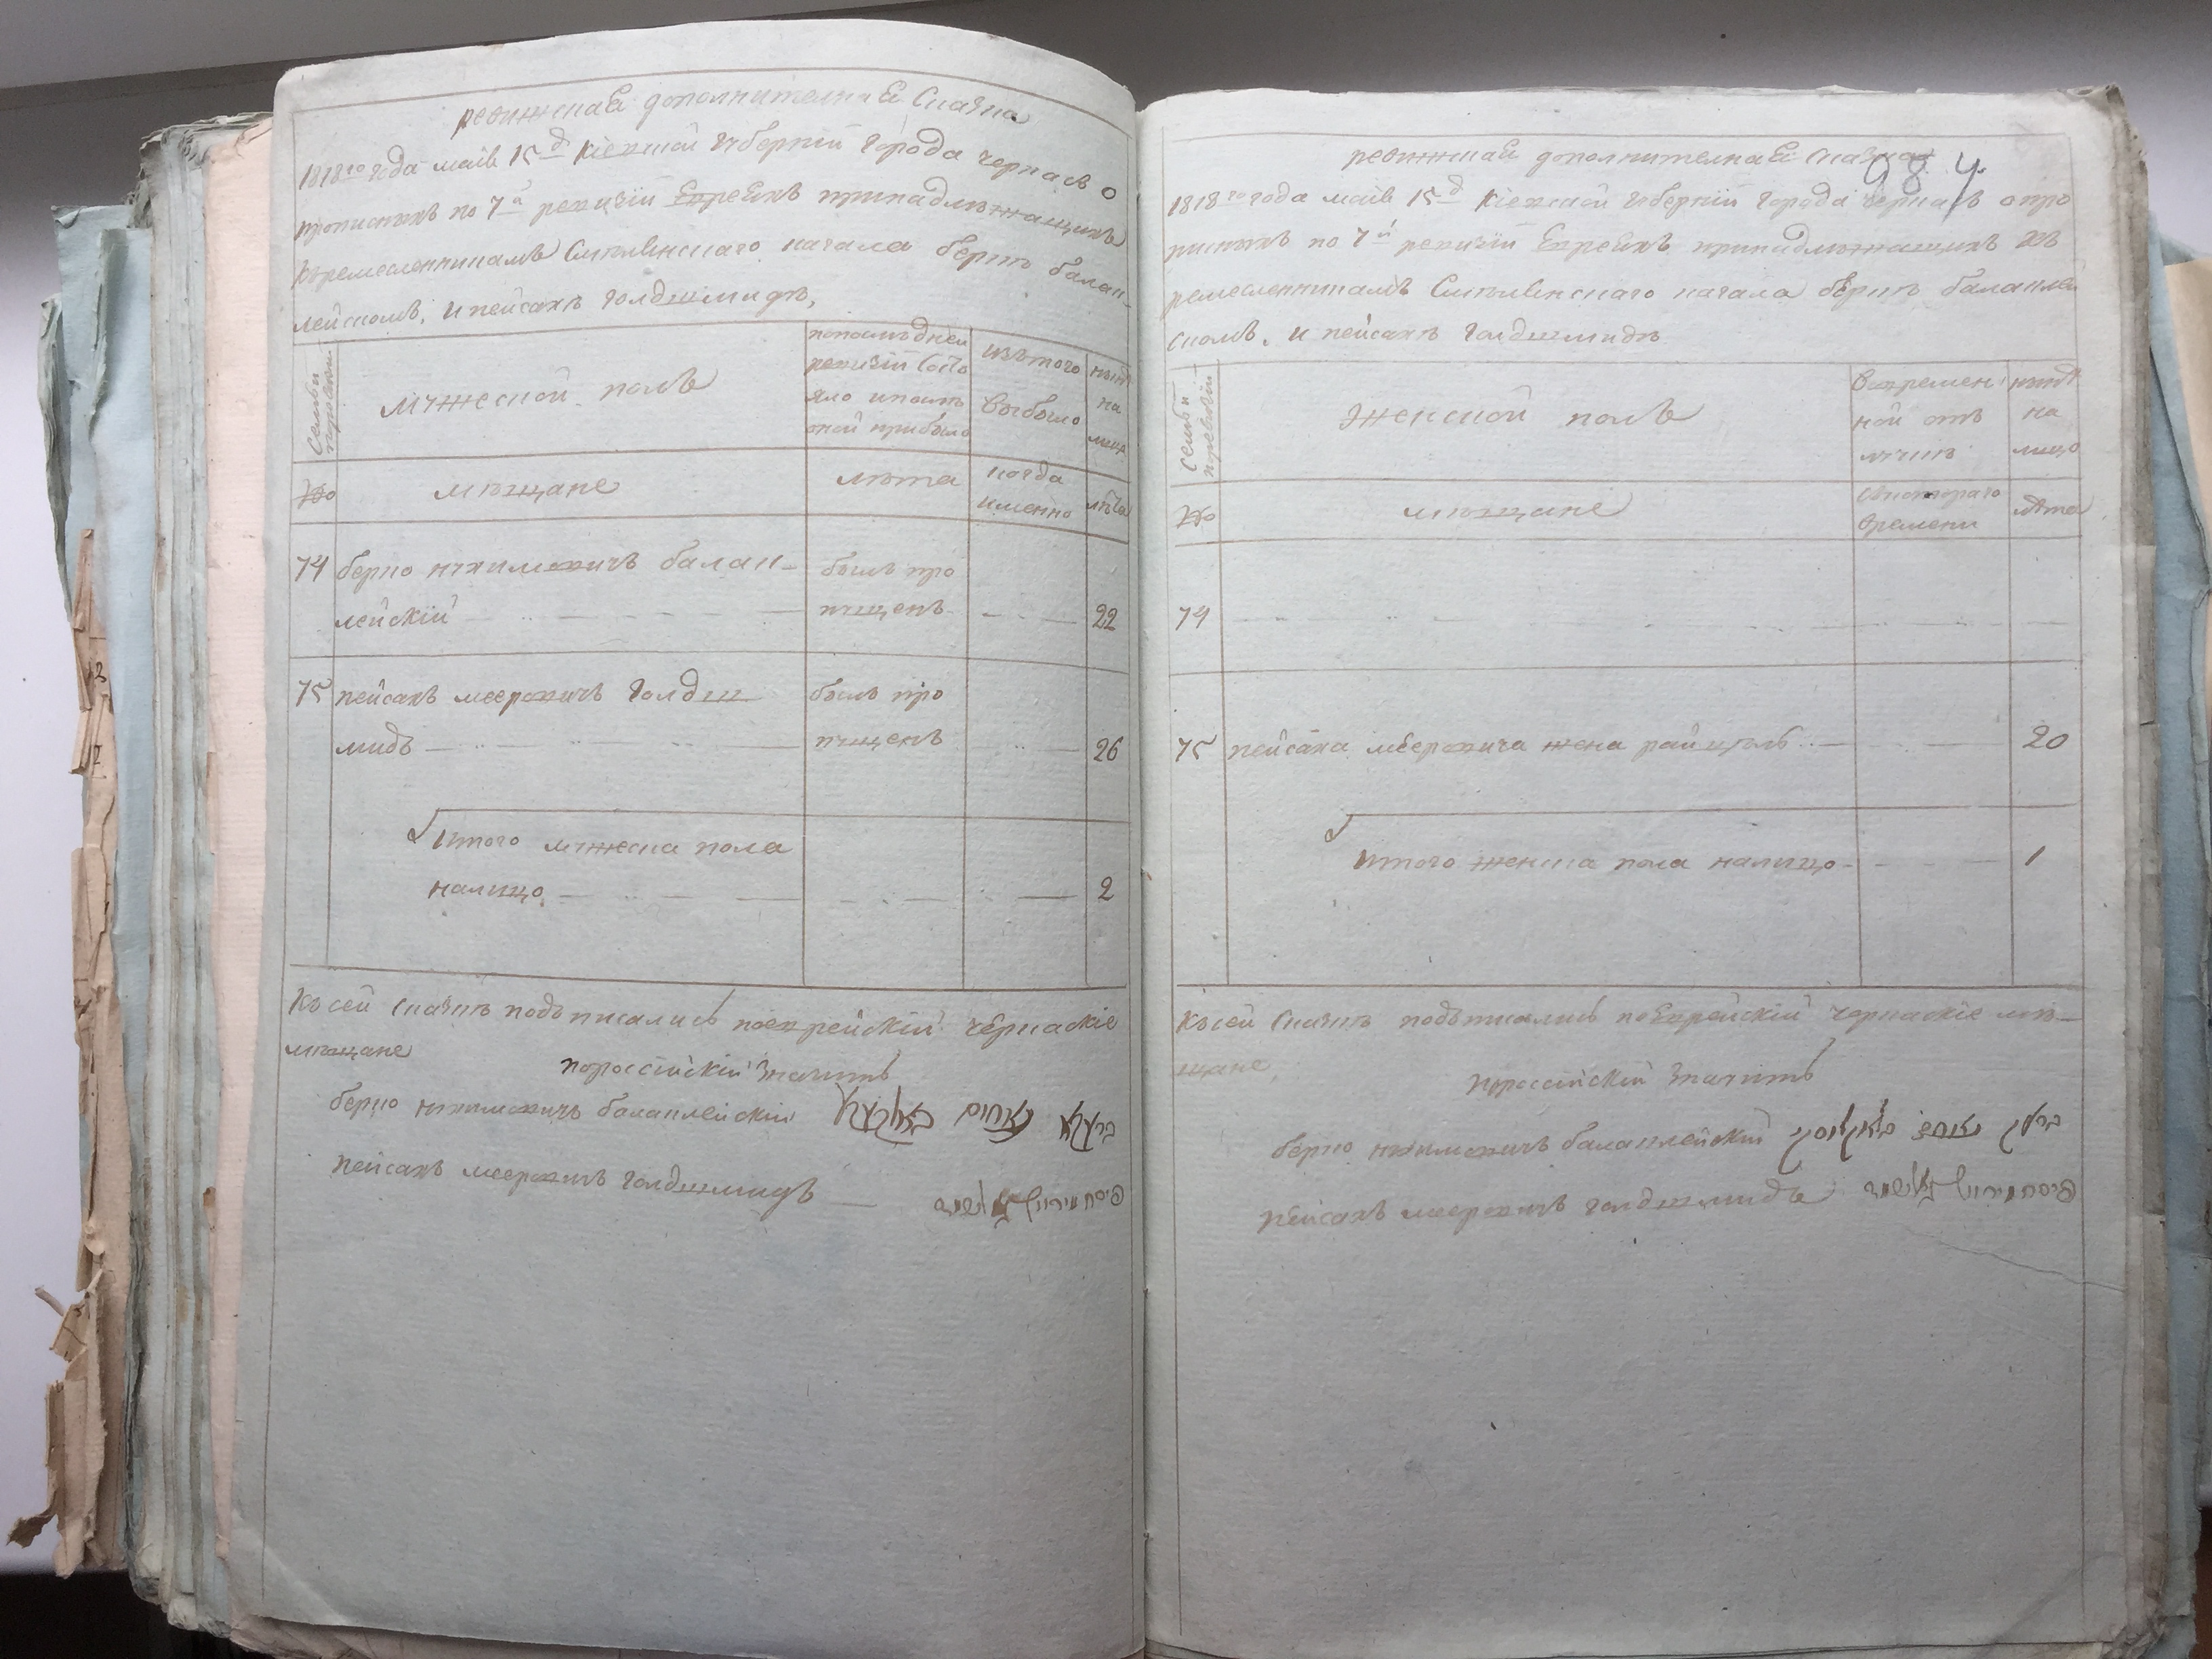 ревижская дополнителная Сказка
1818го года маія 15д Кіевской губерніи города черкасъ о
прописныхъ по 7й ревизіи Евреяхъ принадлѣжащихъ
къремесленникамъ Смѣлянскаго кагала берки балак-
лейскомъ, и пейсахѣ голдшмидѣ,
Семьи поревизіи
мужеской полъ
попослѣдней ревизіи состояло ипослѣ оной прибыло
изътого выбыло
нынѣ на лицо
№
мѣщане
лѣта
когда именно
лѣта
74 берко нухимовичъ балак- былъ про
лейскій пущенъ 22
75 пейсахъ мееровичъ голдш былъ про
мидъ пущенъ 26
Итого мужеска пола
налицо 2
Ксей сказки подъписались поеврейскій черкаскіе
мѣщане
пороссійскій значитъ
берко нухимовичъ балаклейскій
пейсахъ мееровичъ голдшмидъ
984
ревижская дополнителная Сказка
1818го года маія 15д Кіевской губерніи города черкасъ опро
писныхъ по 7й ревизіи Евреяхъ принадлѣжащихъ къ
ремесленникамъ Смѣлянскаго кагала берки балаклей
скомъ. и пейсахѣ голдшмидѣ
Семьи поревизіи
женской полъ
Вовремен
ной отъ
лучкѣ
нынѣ
на
лицо
№
мѣщане
Скотораго
времени
лѣта
74
75 пейсаха мееровича жена райцель 20
Итого женска пола налицо 1
Ксей сказки подъписались поЕврейскій черкаскіе мѣ-
щане,
пороссійскій значитъ
берко нухимовичъ балаклейскій
пейсахъ мееровичъ голдшмидъ